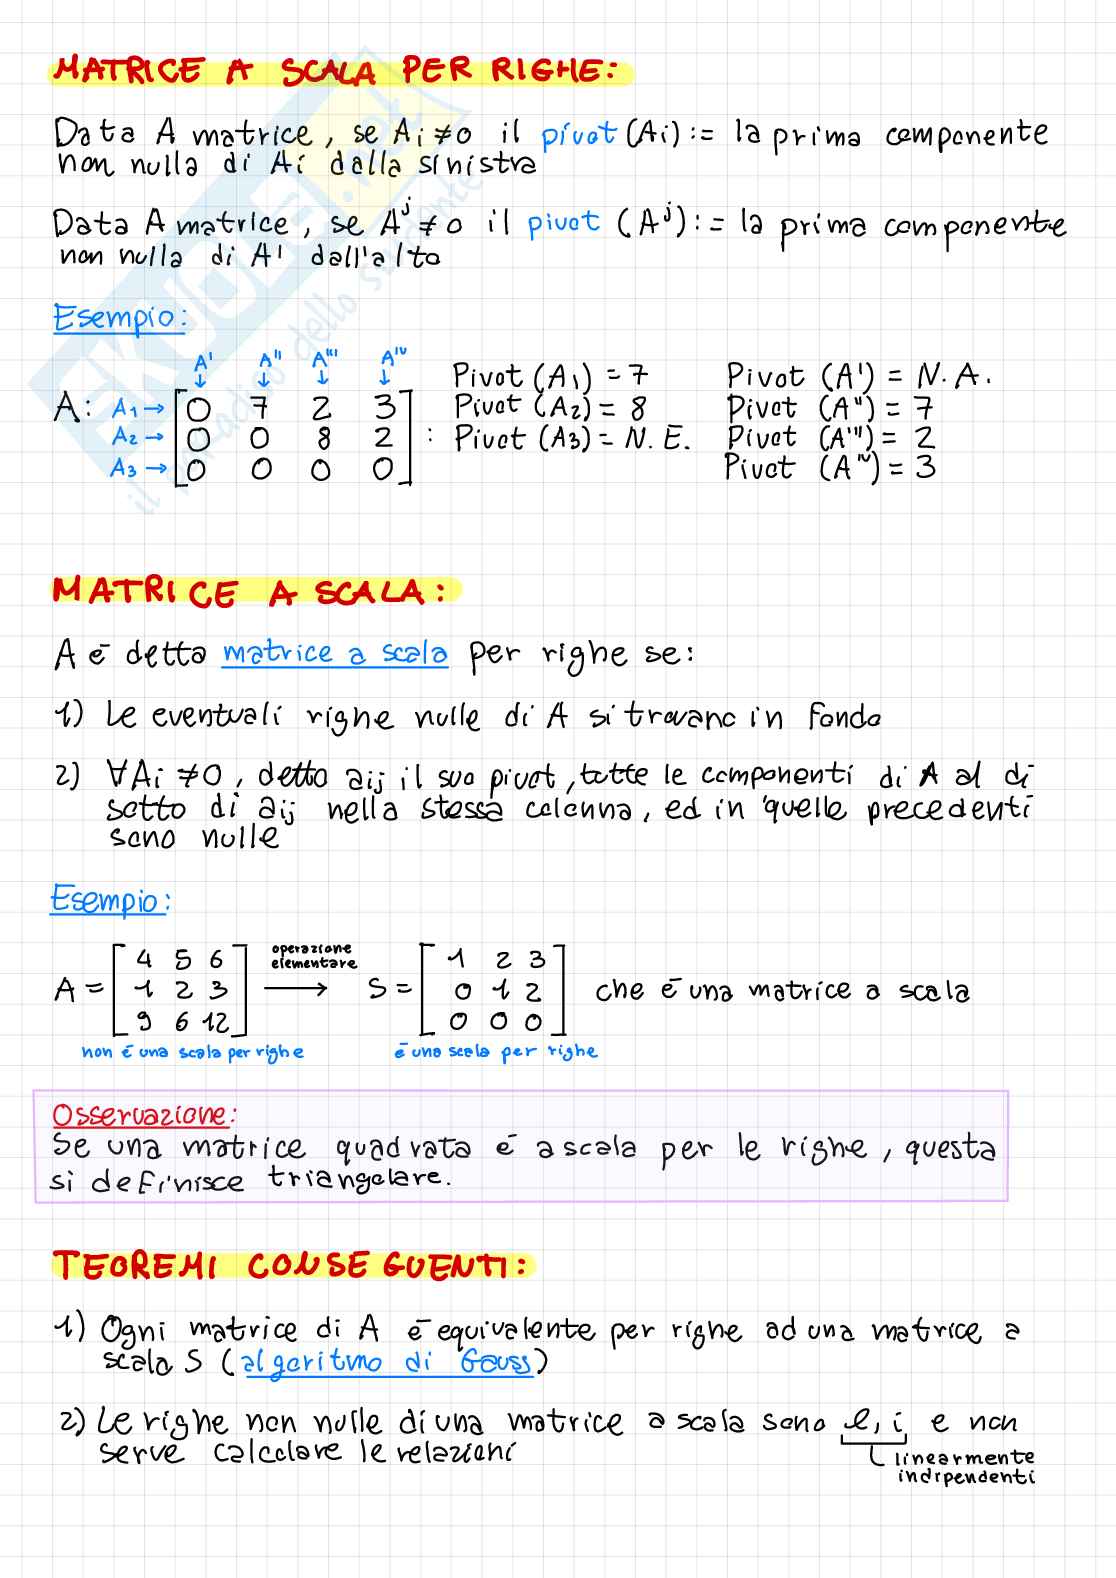 MATRICE A SCALA PER RIGHE:
Data A matrice, se Ai ≠ 0 il pivot (Ai) := la prima componente
non nulla di Ai dalla sinistra
Data A matrice, se Aʲ ≠ 0 il pivot (Aʲ) := la prima componente
non nulla di Aʲ dall'alto
Esempio:
A' A'' A''' Aᴵⱽ
↓ ↓ ↓ ↓
A: A₁ → [0 7 2 3] Pivot (A₁) = 7 Pivot (A') = N.A.
A₂ → [0 0 8 2] : Pivot (A₂) = 8 Pivot (A'') = 7
A₃ → [0 0 0 0] Pivot (A₃) = N.E. Pivot (A''') = 2
Pivot (Aᴵⱽ) = 3
MATRICE A SCALA:
A è detta matrice a scala per righe se:
1) Le eventuali righe nulle di A si trovano in fondo
2) ∀Ai ≠ 0, detto aij il suo pivot, tutte le componenti di A al di
sotto di aij nella stessa colonna, ed in quelle precedenti
sono nulle
Esempio:
A = [4 5 6 / 1 2 3 / 9 6 12] operazione elementare → S = [1 2 3 / 0 1 2 / 0 0 0] che è una matrice a scala
non è una scala per righe è una scala per righe
Osservazione:
Se una matrice quadrata è a scala per le righe, questa
si definisce triangolare.
TEOREMI CONSEGUENTI:
1) Ogni matrice di A è equivalente per righe ad una matrice a
scala S (algoritmo di Gauss)
2) Le righe non nulle di una matrice a scala sono l, i e non
serve calcolare le relazioni
linearmente
indipendenti
SKUOLA.net
il paradiso dello studente